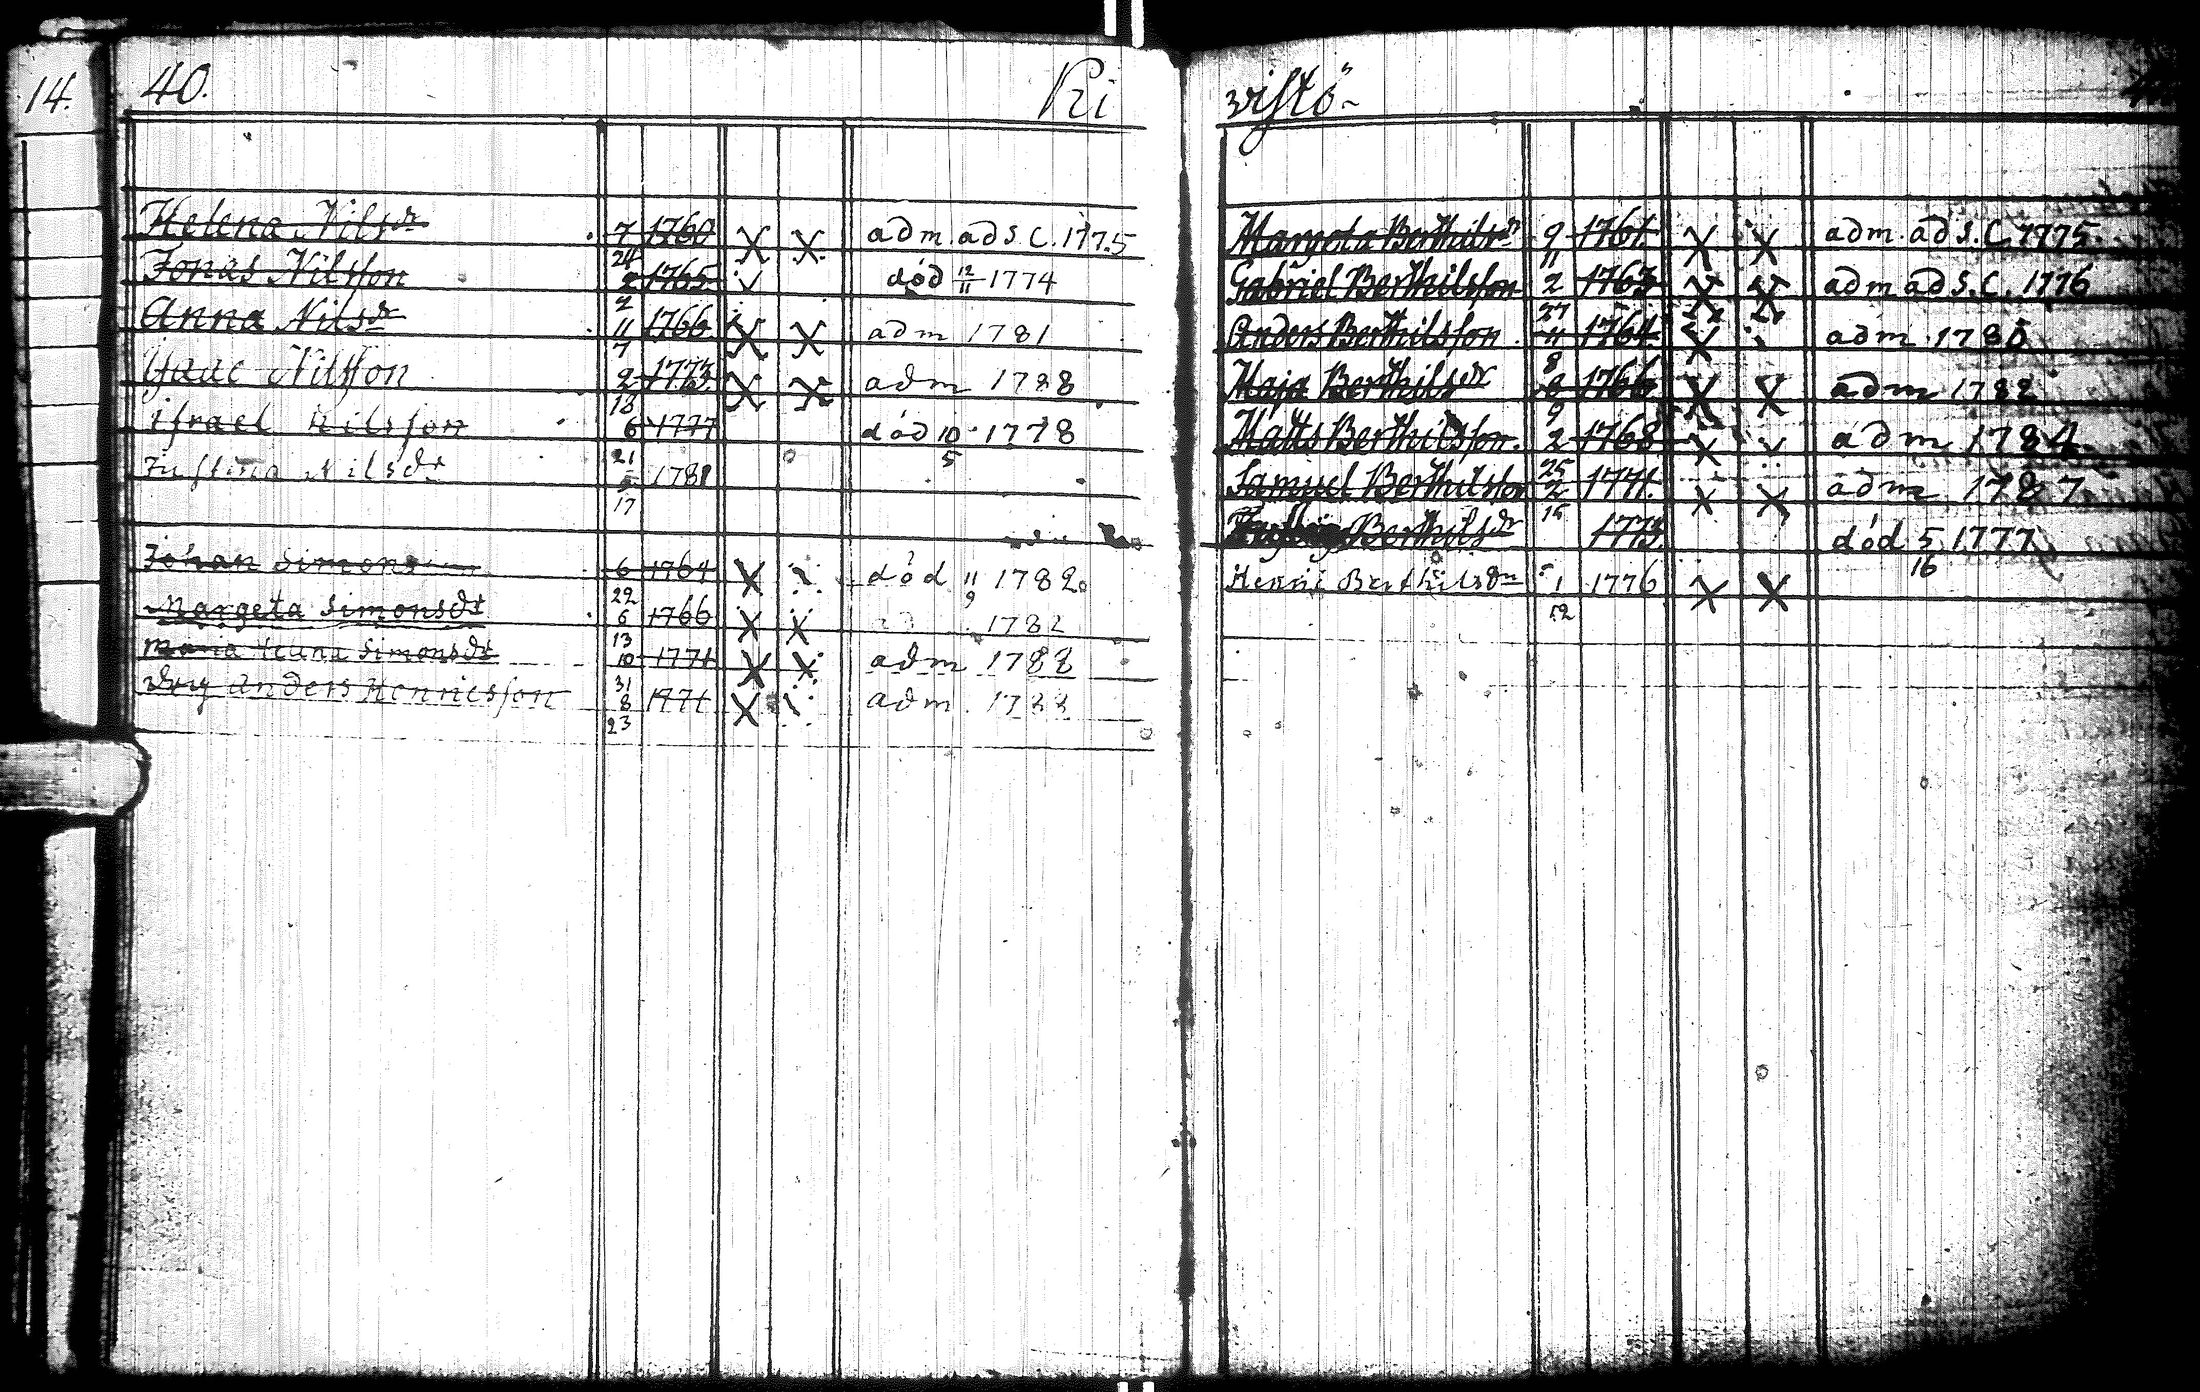 14.
40. Ki
Helena Nilsdr 7 1760 X X adm. ad S. C. 1775
24
Jonas Nilsson 2 1765 död 12/11 1774
2
Anna Nilsdr 11 1766 X X adm 1781
7
Ysaac Nilsson 2 1773 X X adm 1788
18
israel Nilsson 6 1777 död 10/5 1778
21
Justina Nilsdr 1781
17
Johan Simons 6 1764 X död 11/9 1782
22
Margeta Simonsdr 6 1766 X X 1782
13
Maria Helena Simonsdr 10 1771 X X adm 1788
31
Dry Anders Henricsson 8 1771 X adm. 1788
23
vistö
Margeta Berthilsdr 9 1761 X X adm. ad S. C. 1775
11
Gabriel Berthilsson 2 1763 X X adm ad S. C. 1776
27
Anders Berthilsson 11 1764 X adm. 1780
8
Maja Berthilsdr 8 1766 X X adm 1782
9
Matts Berthilsson 2 1768 X adm 1784
25
Samuel Berthilsson 2 1771 X X adm 1787
15
Berthilsdr 1773 död 5/16 1777
Henric Berthilsson 1 1776 X X